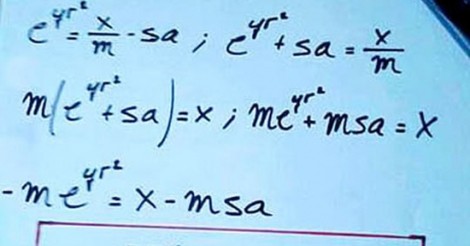 e^{yr²} = x/m - sa ; e^{yr²} + sa = x/m
m(e^{yr²} + sa) = x ; me^{yr²} + msa = x
- me^{yr²} = x - msa